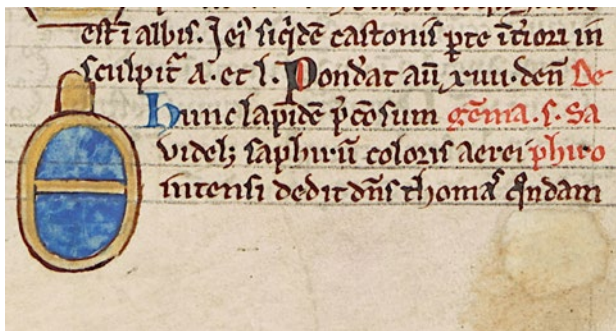 est ĩ albis. Iei᷒ siq̃dẽ castonis ꝑte ĩt̃iori in
sculpit᷑ A. et l. Pond̾at aũ xuııı. deñ De
Hunc lapidẽ p̃cõsum gẽma .s. Sa
videlꝫ saphirũ coloris aerei phiro
intensi dedit dñs thomas qͦndam